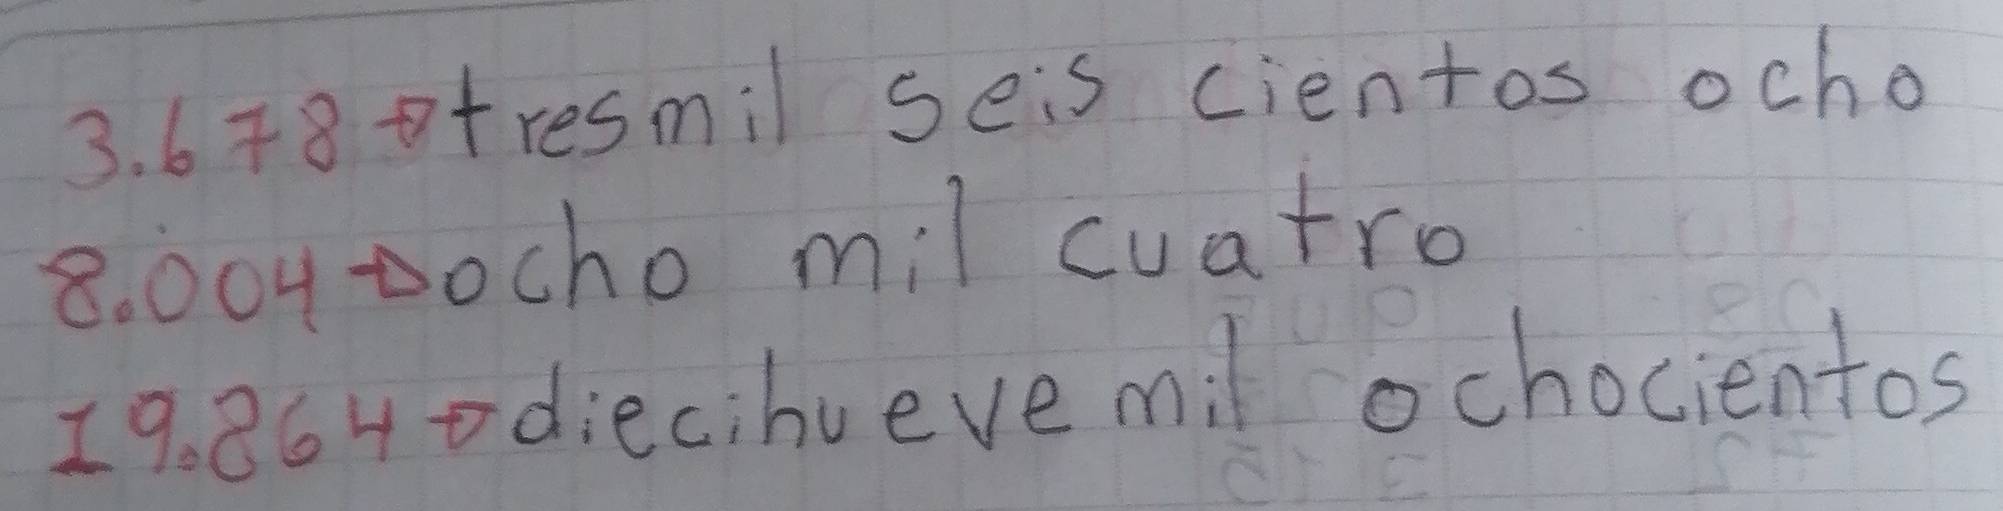 3.678→tresmil seis cientos ocho
8.004→ocho mil cuatro
19.864→diecinueve mil ochocientos